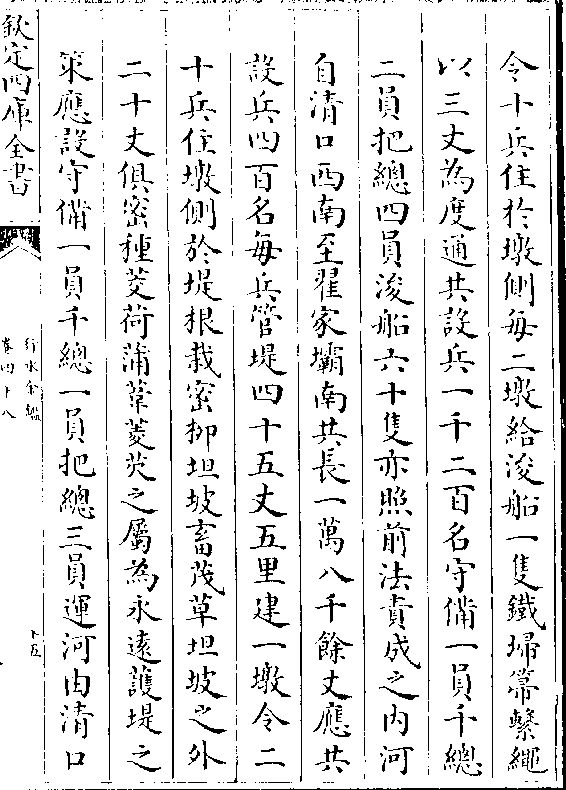 令十兵住於墩側每二墩給浚船一隻鐵埽箒繫繩
以三丈為度通共設兵一千二百名守備一員千總
二員把總四員浚船六十隻亦照前法責成之内河
自清口西南至翟家壩南共長一萬八千餘丈應共
設兵四百名每兵管堤四十五丈五里建一墩令二
十兵住墩側於堤根栽密柳坦坡畜茂草坦坡之外
二十丈俱密種茭荷蒲葦菱芡之屬為永遠護堤之
策應設守備一員千總一員把總三員運河由清口
欽定四庫全書
行水金鑑
卷四十八
十五